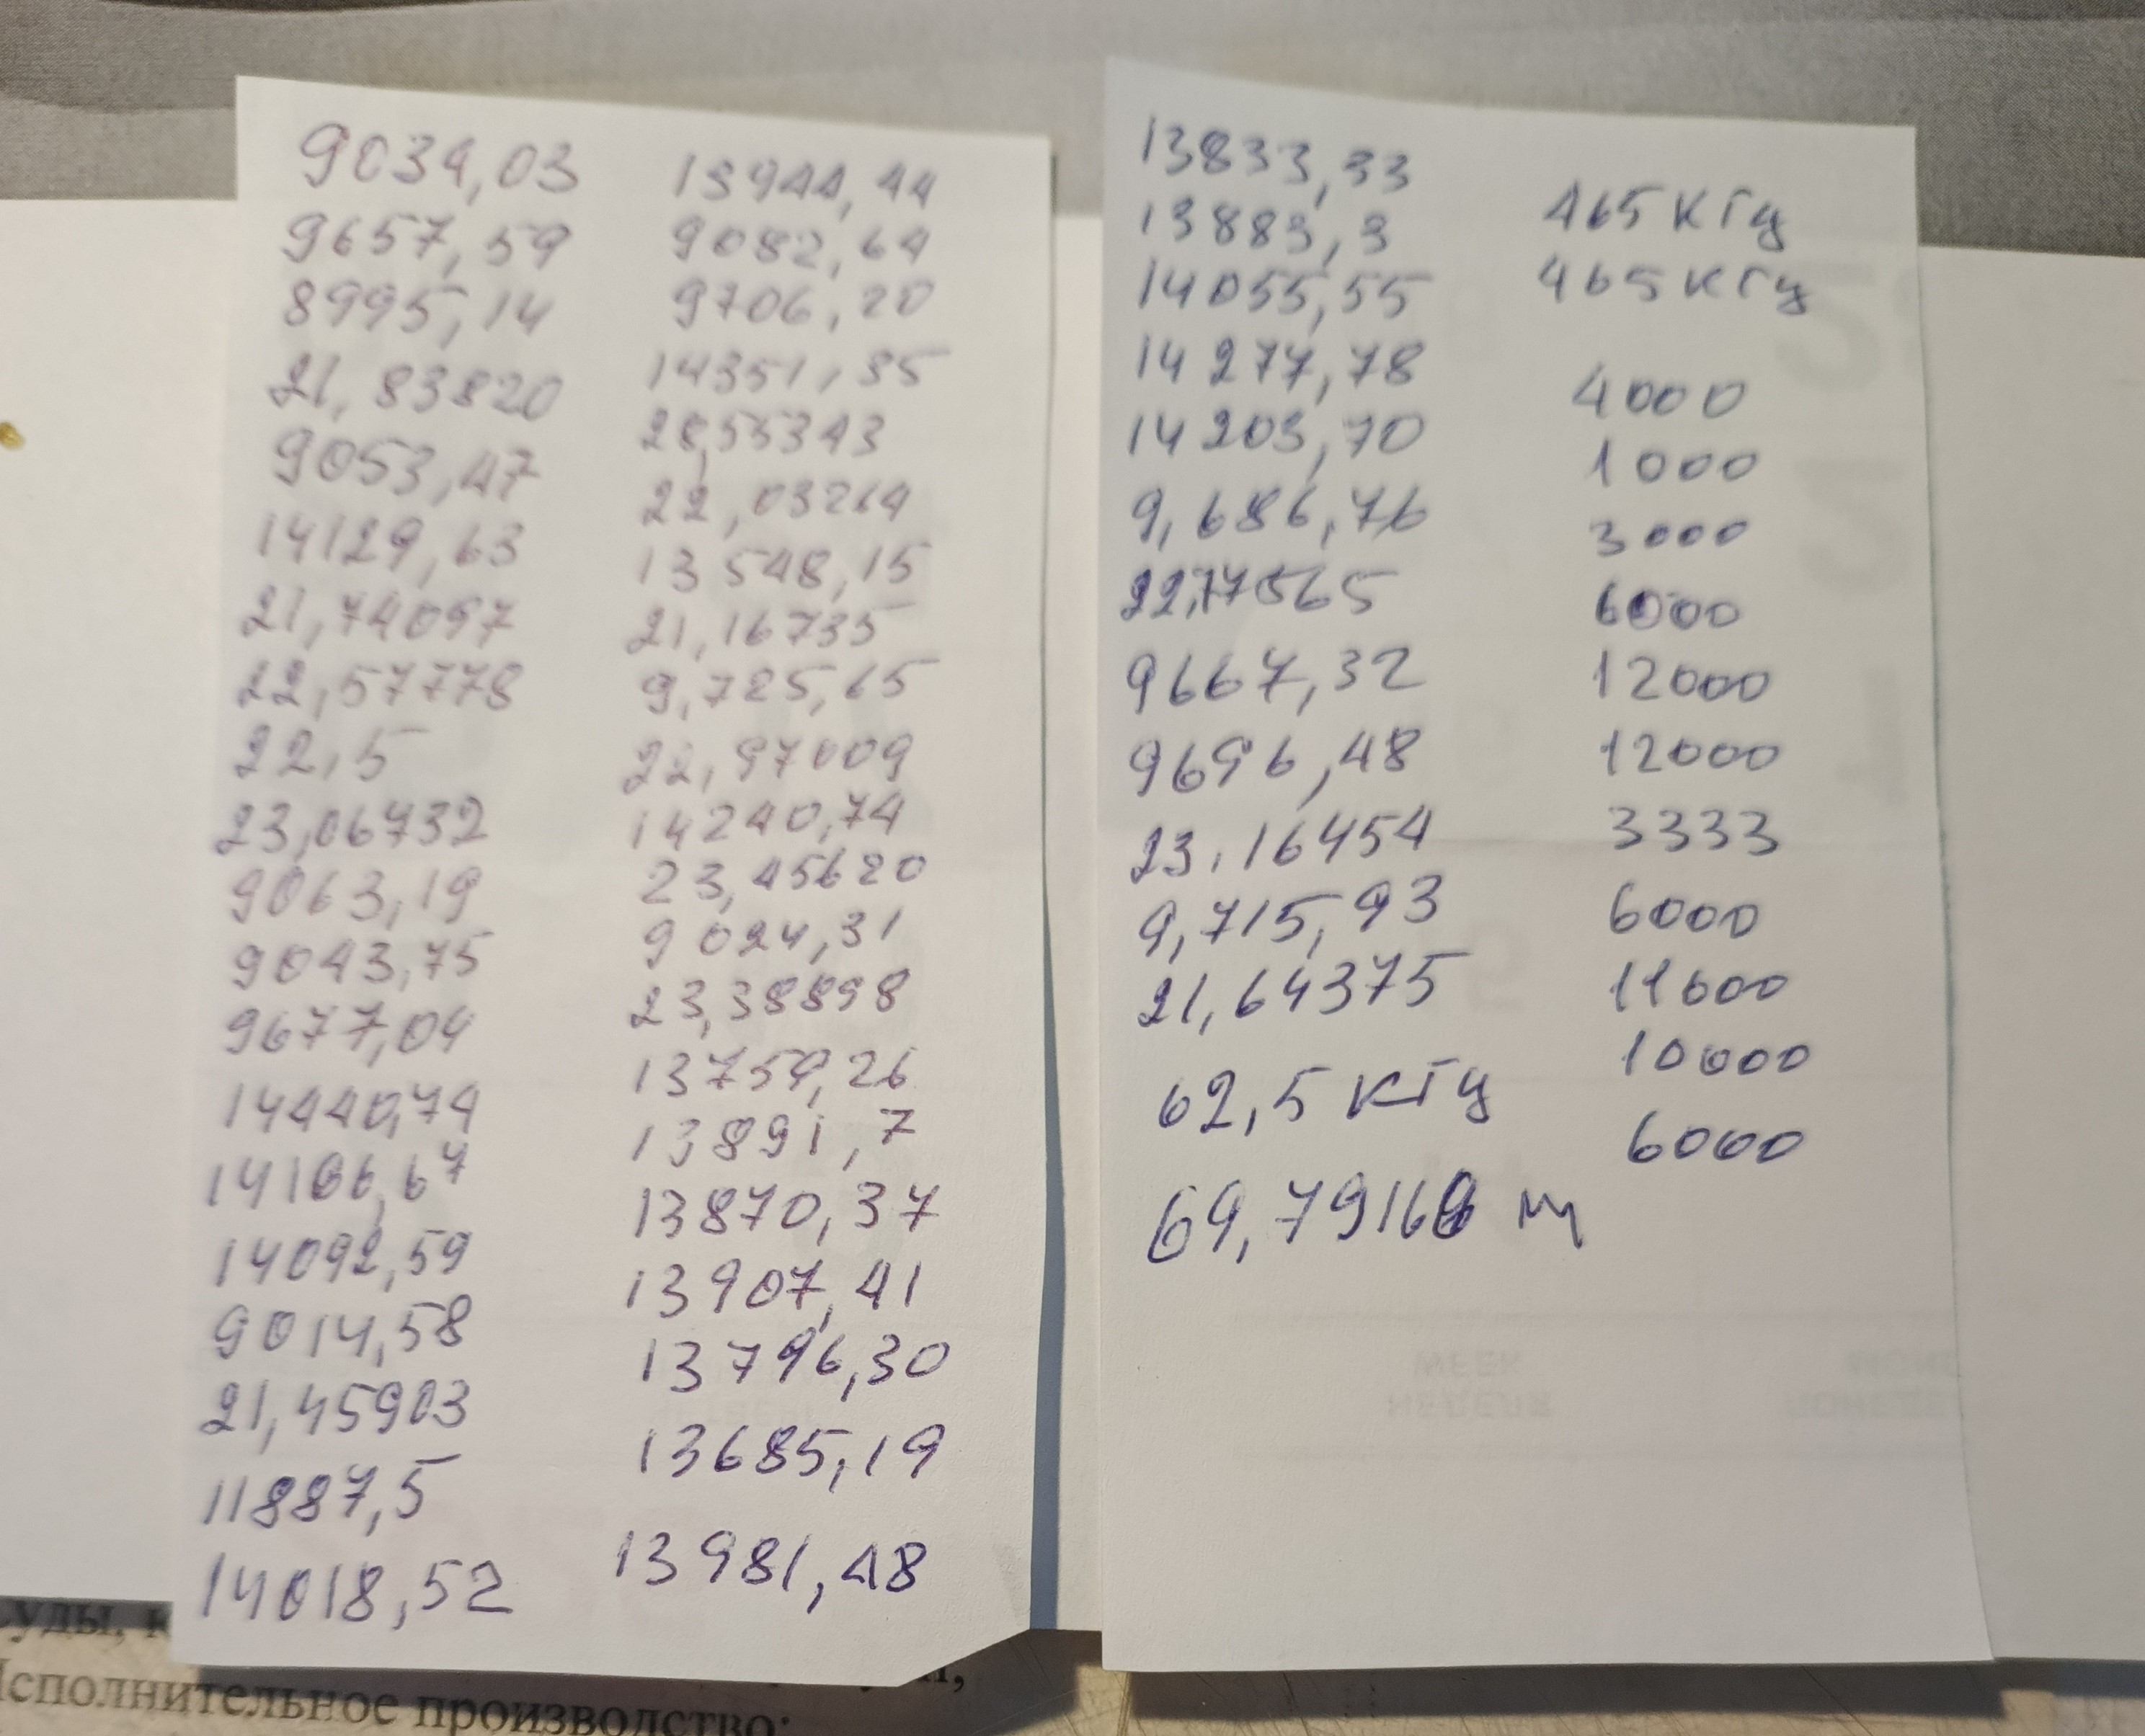 9034,03
9657,59
8995,14
21,83820
9053,47
14129,63
21,74097
22,57778
22,5
23,06732
9063,19
9043,75
9677,04
14440,74
14166,67
14092,59
9014,58
21,45903
11887,5
14018,52
13944,44
9082,64
9706,20
14351,85
28,55343
22,03264
13548,15
21,16735
9,725,65
22,97009
14240,74
23,45620
9024,31
23,38898
13759,26
13891,7
13870,37
13907,41
13796,30
13685,19
13981,48
13833,33
13883,3
14055,55
14277,78
14203,70
9,686,76
22,77565
9667,32
9696,48
23,16454
9,715,93
21,64375
62,5 кГц
69,79168 м
465 кГц
465 кГц
4000
1000
3000
6000
12000
12000
3333
6000
11600
10000
6000
Исполнительное производство: